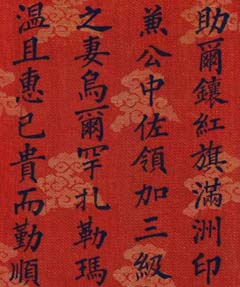 助爾鑲紅旗滿洲印
兼公中佐領加三級
之妻烏爾罕札勒瑪
溫且惠已貴而勤順